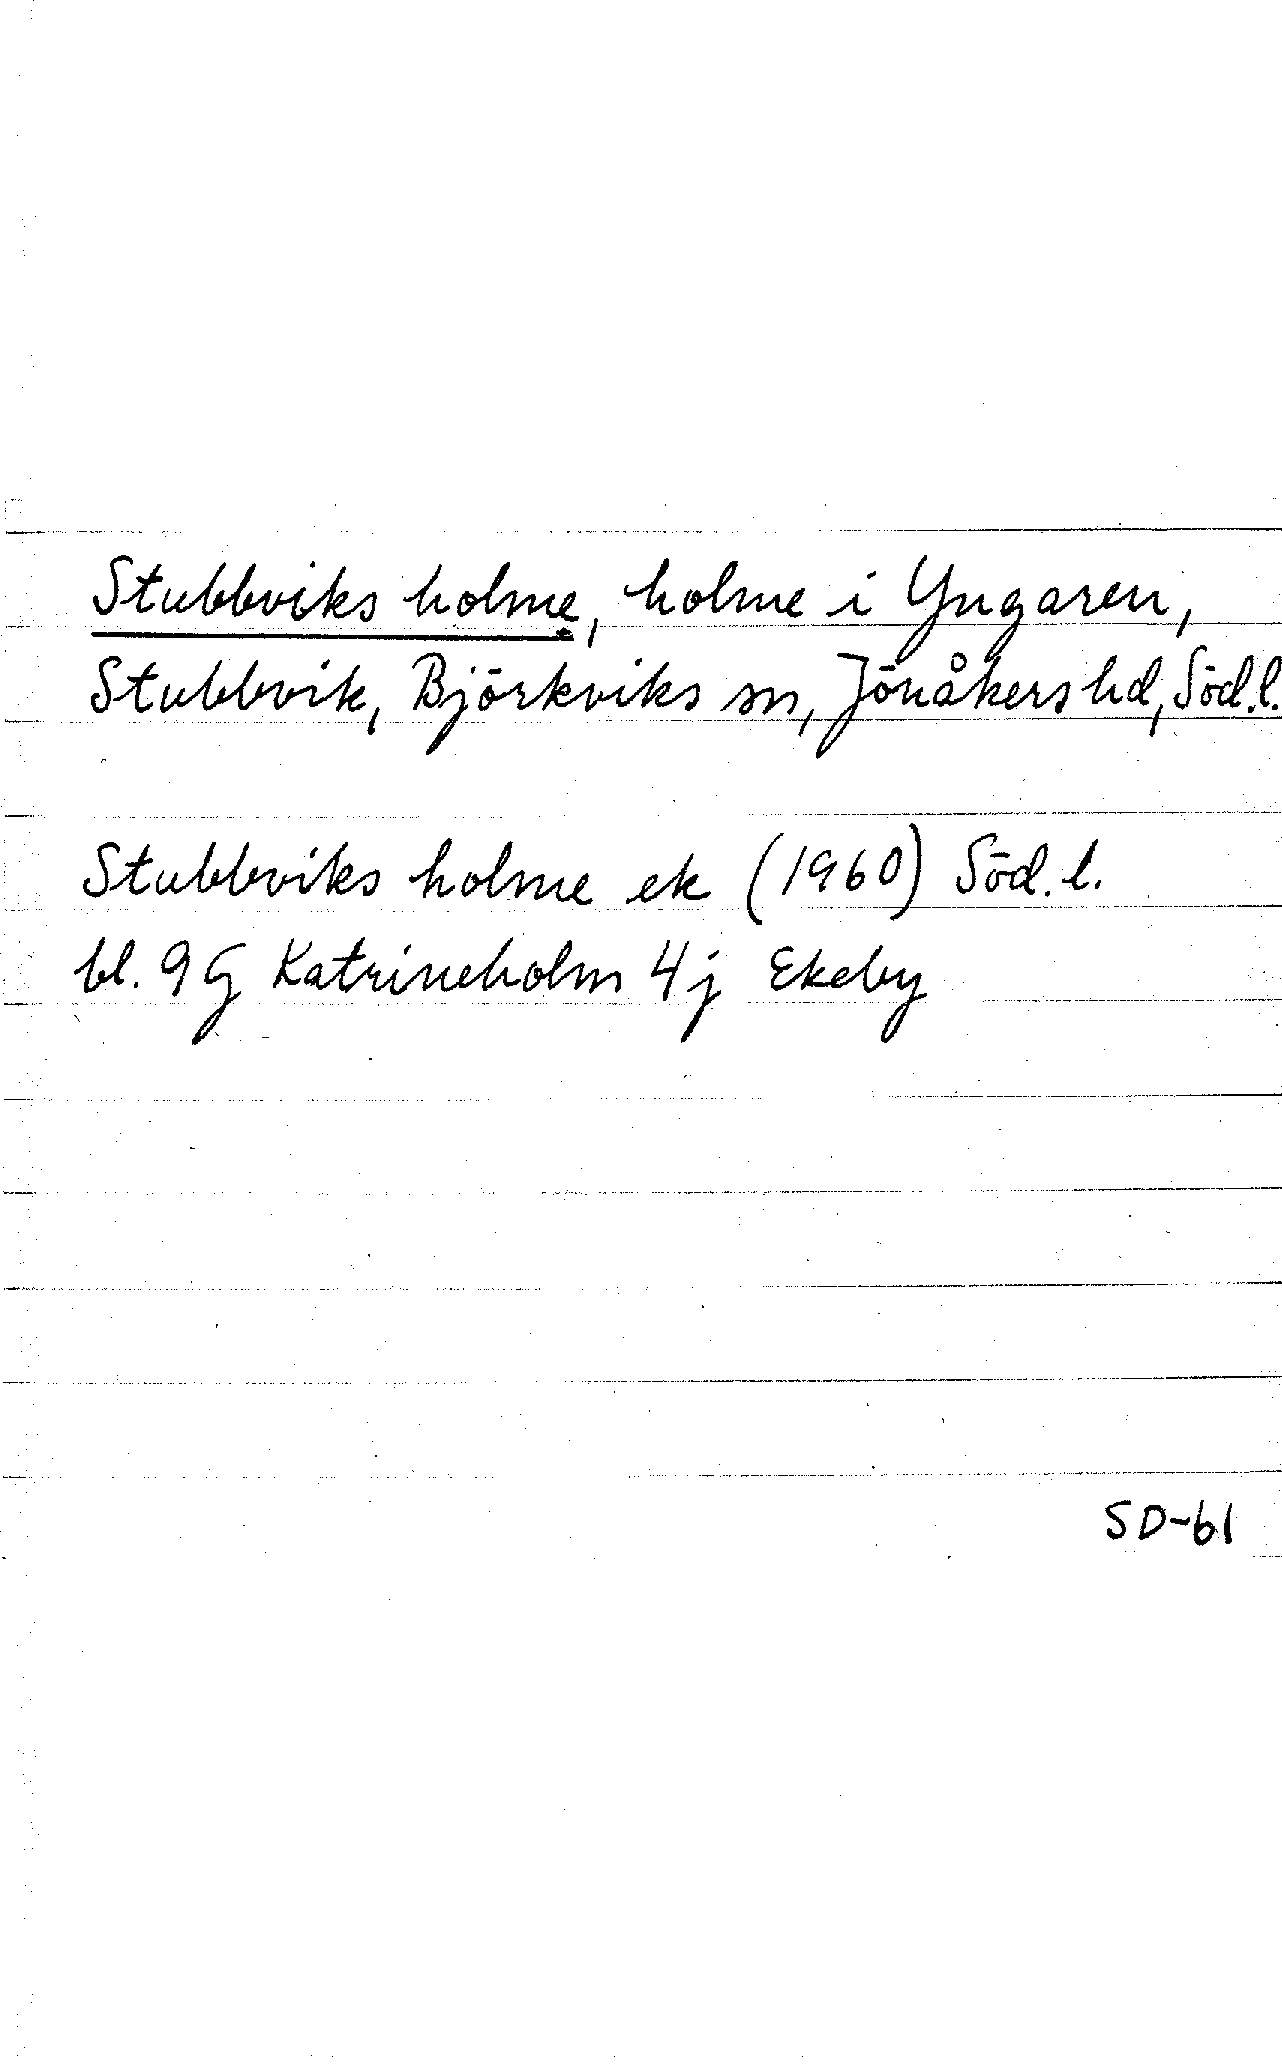 Stubbviks holme, holme i Yngaren,
Stubbvik, Björkviks sn, Jönåkers hd, Söd.l.
Stubbviks holme ek (1960) Söd.l.
bl. 9G Katrineholm 4j Ekeby
SD-61